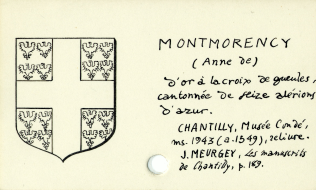 MONTMORENCY
(Anne de)
d'or à la croix de gueules,
cantonnée de seize alérions
d'azur.
CHANTILLY, Musée Condé,
ms. 1943 (a. 1549), reliure.
J. MEURGEY, Les manuscrits
de Chantilly, p. 189.